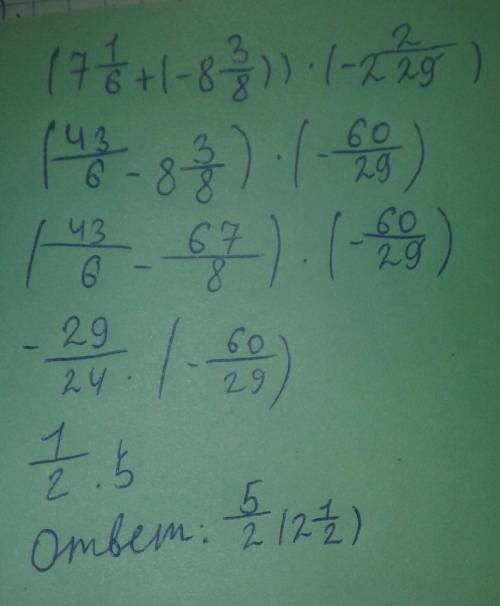 (7 1/6 + (-8 3/8)) · (-2 2/29)
(43/6 - 8 3/8) · (-60/29)
(43/6 - 67/8) · (-60/29)
-29/24 · (-60/29)
1/2 · 5
Ответ: 5/2 (2 1/2)